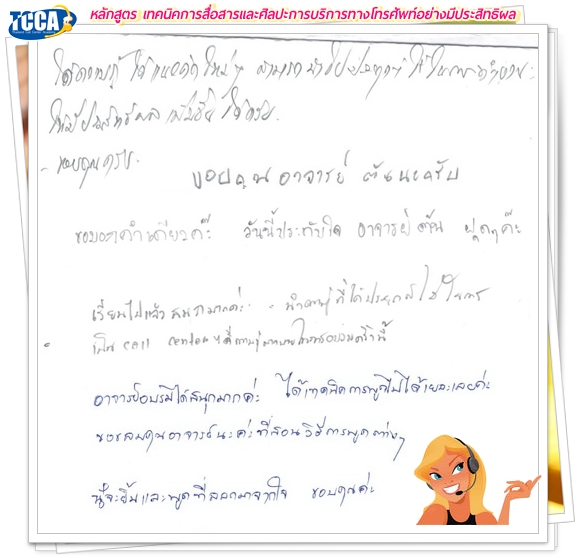 TCCA
Thailand Call Center Academy
หลักสูตร เทคนิคการสื่อสารและศิลปะการบริการทางโทรศัพท์อย่างมีประสิทธิผล
ได้ความรู้ ได้แนวคิดใหม่ๆ สามารถนำไปประยุกต์ใช้ในการทำงาน
ให้มีประสิทธิผลเพิ่มขึ้นได้ครับ
- ขอบคุณครับ
ขอบคุณ อาจารย์ ต้นนะครับ
ขอบอกคำเดียวค่ะ วันนี้ประทับใจ อาจารย์ต้น สุดๆค่ะ
เรียนไปแล้วสนุกมากค่ะ นำความรู้ที่ได้ประยุกต์ใช้ในการ
เป็น call center
อาจารย์อบรมได้สนุกมากค่ะ ได้เทคนิคการพูดไปได้เยอะเลยค่ะ
ขอขอบคุณอาจารย์นะค่ะที่สอนวิธีการพูดต่างๆ
นู๋จะยิ้มและพูดที่ออกมาจากใจ ขอบคุณค่ะ